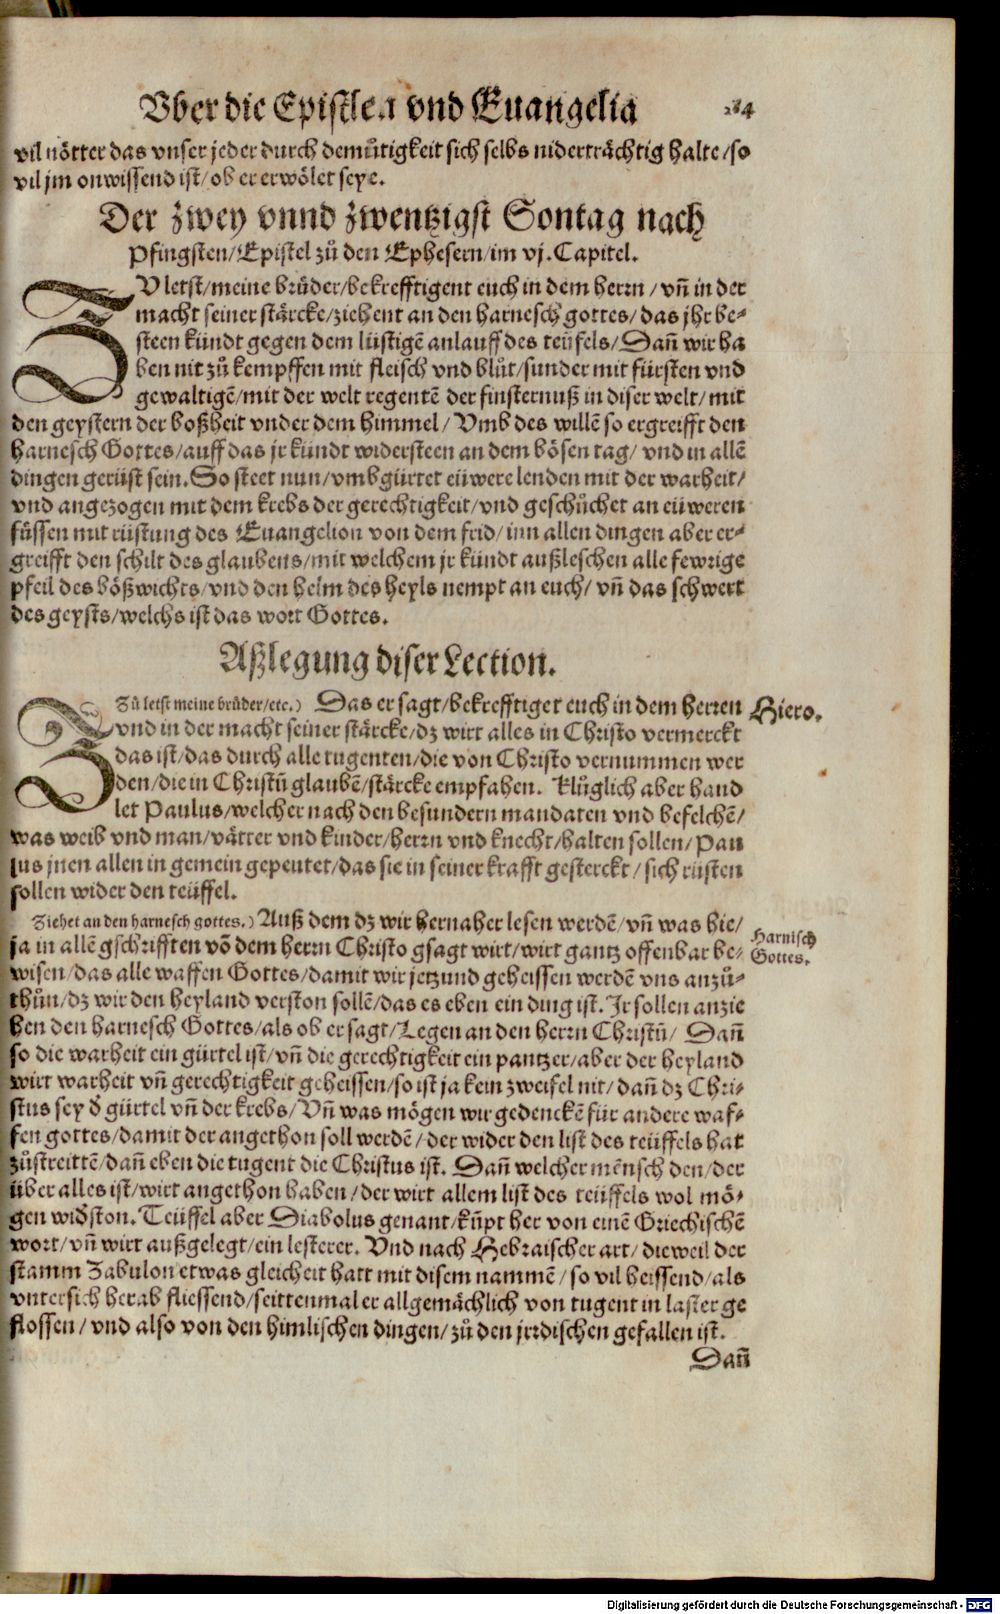 Vber die Epistlen vnd Euangelia 284
vil nötter das vnser jeder durch demůtigkeit sich selbs niderträchtig halte/so
vil jm onwissend ist/ob er erwölet seye.
Der zwey vnnd zwentzigst Sontag nach
Pfingsten/Epistel zů den Ephesern/im vj. Capitel.
ZVletst/meine brüder/bekrefftigent euch in dem herrn/vñ in der
macht seiner stärcke/ziehent an den harnesch gottes/das jhr be-
steen kündt gegen dem listigē anlauff des teüfels/Dañ wir ha
ben nit zů kempffen mit fleisch vnd blůt/sunder mit fürsten vnd
gewaltigē/mit der welt regentē der finsternuß in diser welt/mit
den geystern der boßheit vnder dem himmel/Vmb des willē so ergreifft den
harnesch Gottes/auff das jr kündt widersteen an dem bösen tag/vnd in allē
dingen gerüst sein. So steet nun/vmbgürtet eüwere lenden mit der warheit/
vnd angezogen mit dem krebs der gerechtigkeit/vnd geschůchet an eüweren
füssen mit rüstung des Euangelion von dem frid/inn allen dingen aber er-
greifft den schilt des glaubens/mit welchem jr kündt außleschen alle fewrige
pfeil des bößwichts/vnd den helm des heyls nempt an euch/vñ das schwert
des geysts/welchs ist das wort Gottes.
Aßlegung diser Lection.
Zů letst meine brüder/etc.) Das er sagt/bekrefftiget euch in dem herren
vnd in der macht seiner stärcke/dz wirt alles in Christo vermerckt
das ist/das durch alle tugenten/die von Christo vernummen wer
den/die in Christū glaubē/stärcke empfahen. Klůglich aber hand
let Paulus/welcher nach den besundern mandaten vnd befelchē/
was weib vnd man/vätter vnd kinder/herrn vnd knecht/halten sollen/Pau
lus jnen allen in gemein gepeutet/das sie in seiner krafft gesterckt/sich rüsten
sollen wider den teüffel.
Hiero.
Ziehet an den harnesch gottes.) Auß dem dz wir hernaher lesen werdē/vñ was hie/
ja in allē gschrifften vō dem herrn Christo gsagt wirt/wirt gantz offenbar be-
wisen/das alle waffen Gottes/damit wir jetzund geheissen werdē vns anzů-
thůn/dz wir den heyland verston sollē/das es eben ein ding ist. Jr sollen anzie
hen den harnesch Gottes/als ob er sagt/Legen an den herrn Christū/Dañ
so die warheit ein gürtel ist/vñ die gerechtigkeit ein pantzer/aber der heyland
wirt warheit vñ gerechtigkeit geheissen/so ist ja kein zweifel nit/dañ dz Chri-
stus sey d̄ gürtel vñ der krebs/Vñ was mögen wir gedenckē für andere waf-
fen gottes/damit der angethon soll werdē/der wider den list des teüffels hat
zůstreittē/dañ eben die tugent die Christus ist. Dañ welcher mēnsch den/der
über alles ist/wirt angethon haben/der wirt allem list des teüffels wol mö-
gen wid̄ston. Teüffel aber Diabolus genant/kūpt her von einē Griechischē
wort/vñ wirt außgelegt/ein lesterer. Vnd nach Hebraischer art/dieweil der
stamm Zabulon etwas gleicheit hatt mit disem nammē/so vil heissend/als
vntersich herab fliessend/seittenmal er allgemächlich von tugent in laster ge
flossen/vnd also von den himlischen dingen/zů den jrrdischen gefallen ist.
Harnisch
Gottes.
Dañ
Digitalisierung gefördert durch die Deutsche Forschungsgemeinschaft - DFG